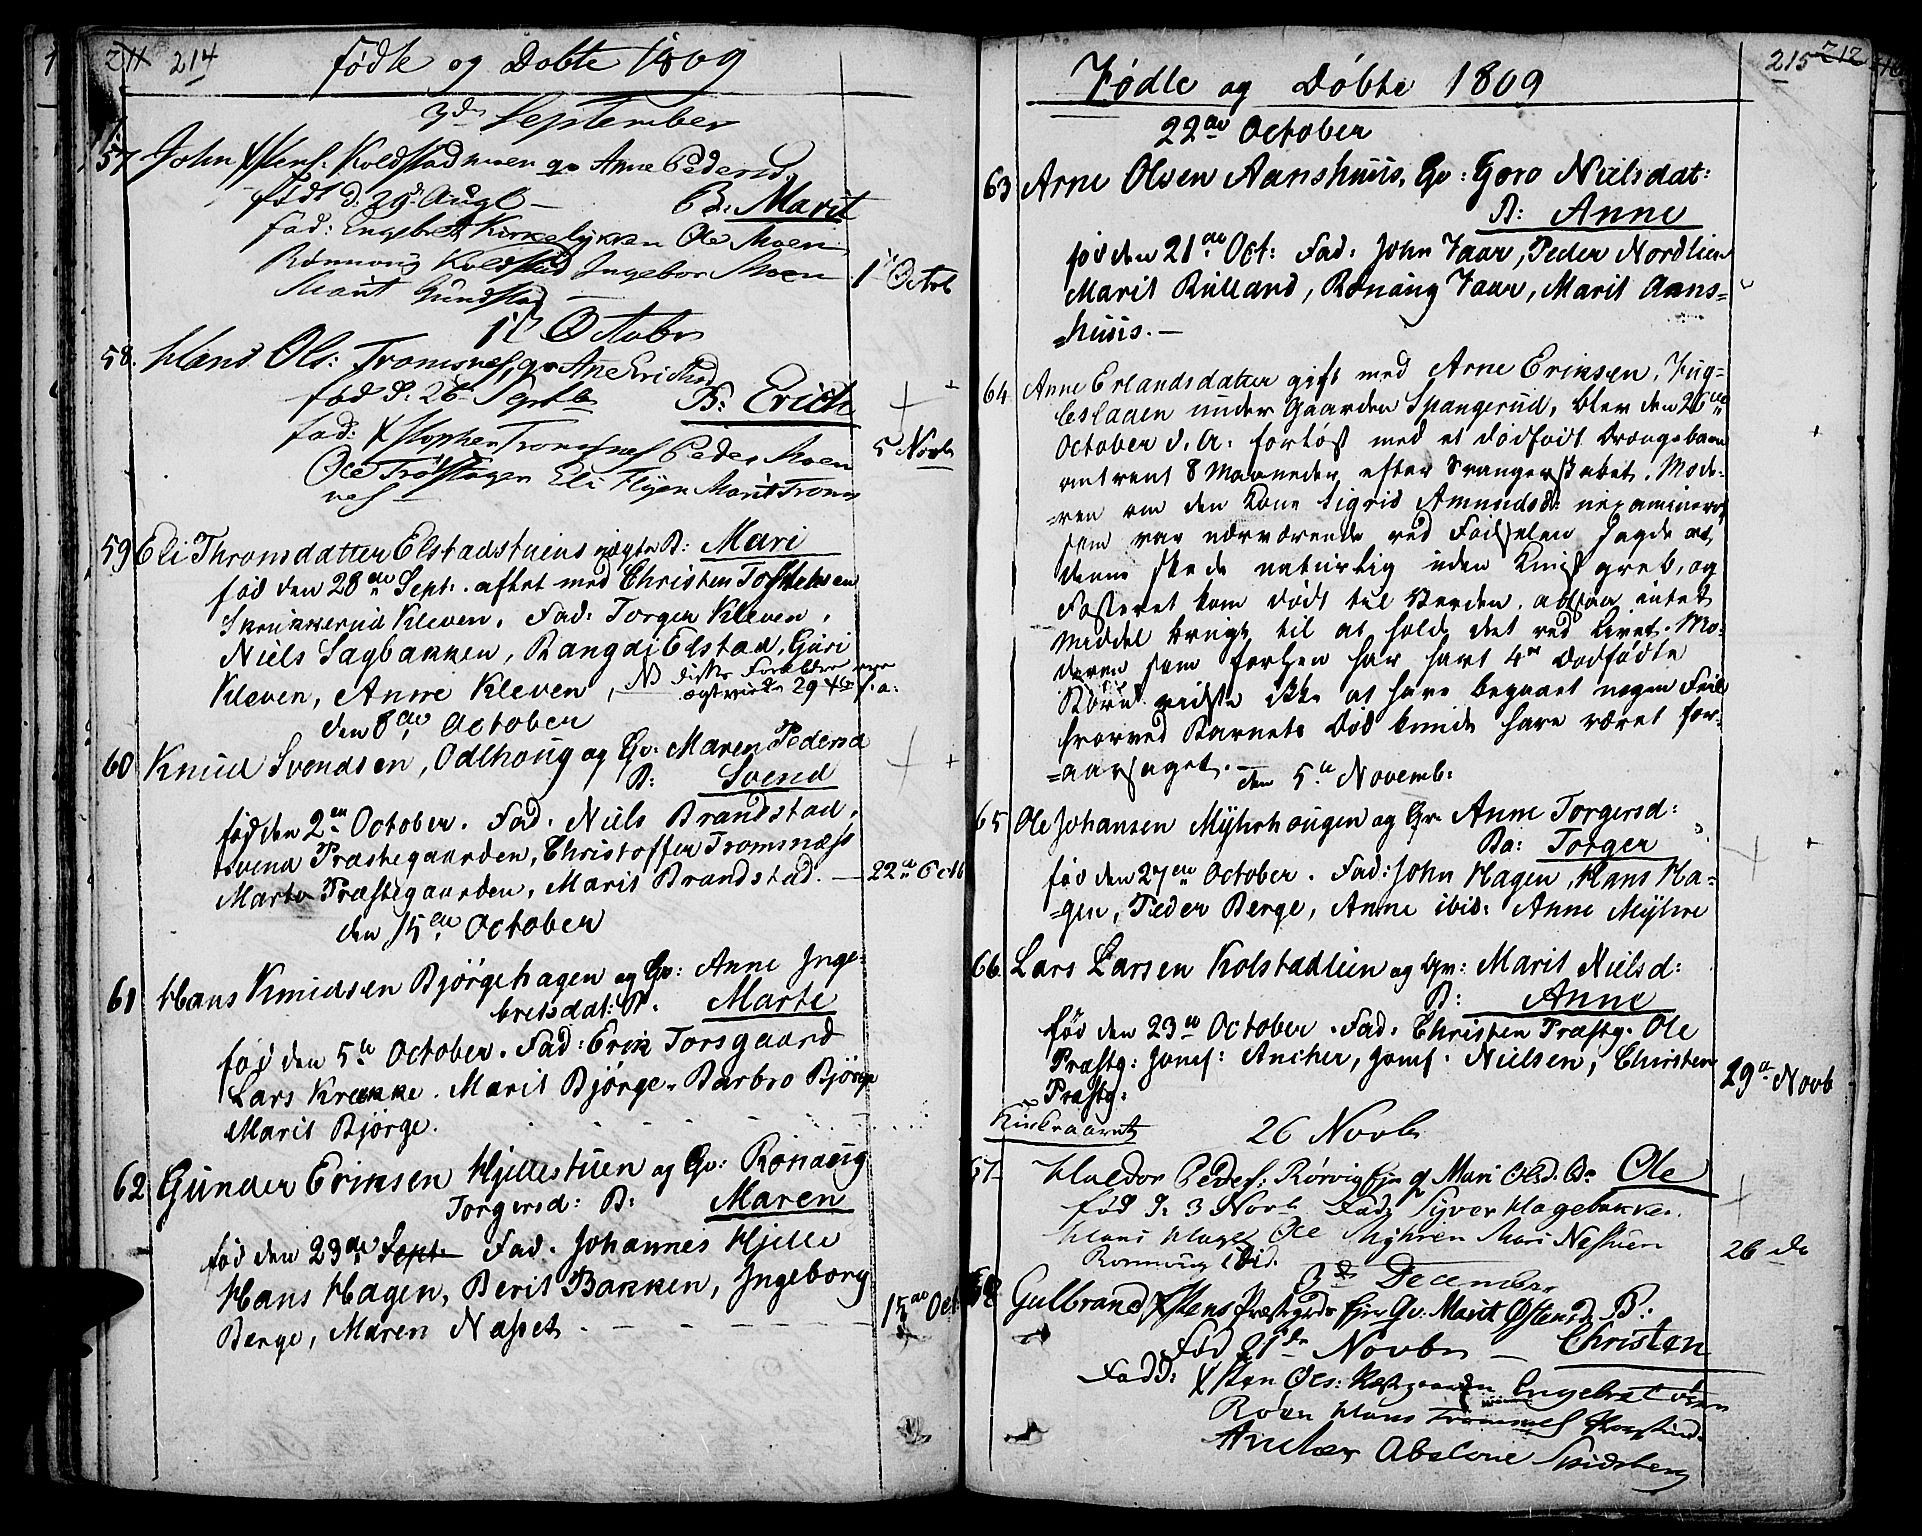 211 214
fødte og Døbte 1809
3de September
57 John Xstens. Koldstadmoen gv Anne Pedersd.
født d: 29 Augt — B: Marit
fad: Engebret Kirkelykken Ole Moen
Rønnoug Koldstad Ingebor Moen 1t Octob
Marit Gundstad
1t October
58. Hans Ols: Tromsnes, gv Ane Erichsd
fød d. 26 Septb B: Erich
fad: Xstopher Tromsnes Peder Moen 5 Novb
Ole Eli Flyen Marit Troms
nes
59 Eli Thromsdatter Elstadstuens uægte B: Mari
fød den 28de Sept. aflet med Christen Tostensen
Skrukkerud Kleven. Fad: Torger Kleven,
Niels Sagbakken, Rangdi Elstad, Guri
Kleven, Anne Kleven, NB disse Forældre
29 f. a:
den 8de October
60 Knud Svendsen, Odlhoug og Gv: Maren Pedersd
B: Svend
fød den 2den October. Fad. Niels Brandstad,
Svend Præstegaarden, Christoffer Tromsnæss
Marte Præstegaarden, Marit Brandstad. — 22de Octb
den 15de October
61 Hans Knudsen Bjørgehagen og Gv: Anne Inge-
bretsdat: B. Marte
fød den 5te October. Fad: Erik Torsgaard
Lars Krekke. Marit Bjørge. Barbro Bjørge
Marit Bjørge.
62 Gunder Eriksen Hjellestuen og Gv: Rønaug
Torgersd: B: Maren
fød den 23de Sept. Fad. Johannes Hjelle
Hans Hagen, Berit Bakken, Ingeborg
Berge, Maren Næsset. 15de Oct
215 212
Fødte og Døbte 1809
22de October
63 Arne Olsen Aanshuus, Gv: Goro Nielsdat:
B: Anne
fød den 21de Oct: Fad: John Faar, Peder Nordlien
Marit Rulland, Rønaug Faar, Marit Aans=
=huus. —
64 Anne Erlandsdatter gift med Arne Eriksen, Fug=
lesladen under Gaarden Spangerud, blev den 26de
October d. A: forløst med et dødfødt Drengebarn
omtrent 8 Maaneder efter Svangerskabet. Mode-
=ren om den Kone Sigrid Amundsd:
som var nærværende ved Fødselen sagde at
denne skede naturlig uden Kunstgreb, og
Fosteret kom dødt til Verden, altsaa intet
Middel brugt til at holde det ved Livet. Mo-
deren som forhen har havt 4re Dødfødte
Børn vidste ikke at have begaaet nogen Feil
hvorved Barnets Død kunde have været for-
=aarsaget. —
den 5te Novemb:
65 Ole Johansen Myhrhougen og Gv. Anne Torgersd:
Ba: Torger
fød den 27de October. Fad: John Hagen, Hans Ha=
=gen, Peder Berge, Anne ibid: Anne Myhre
66 Lars Larsen Kolstadlien og Gv: Marit Nielsd:
B: Anne
fød den 23de October. Fad: Christen Præstg. Ole
Præstg: Jomf: Ancher, Jomf: Nielsen, Christen
Præstg: 29de Novb
26 Novb
67 Haldor Peders. Rørvig Eje g Mari Olsd. B: Ole
fød d. 3 Novb. Fad: Syver Hagebakke.
Hans Hage Ole Myhren Mari Nestuen 26 do
Rønnoug ibid.
3de December
68 Gulbrand Xstens Præstgrds Eje Gv: Marit Østensd. B:
Christen
Fød 21de Novbr —
Fadd: Xsten Ols: Engebret
Roen Hans Tromsnes
Ancher Abelone Skidsberg